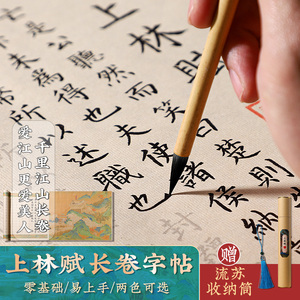 上林
是公聽然而笑曰楚則
未為得也夫使諸納
所以述職也
封
千里江山长卷
爱江山更爱美人
上林赋长卷字帖
零基础/易上手/两色可选
赠
流苏
收纳筒